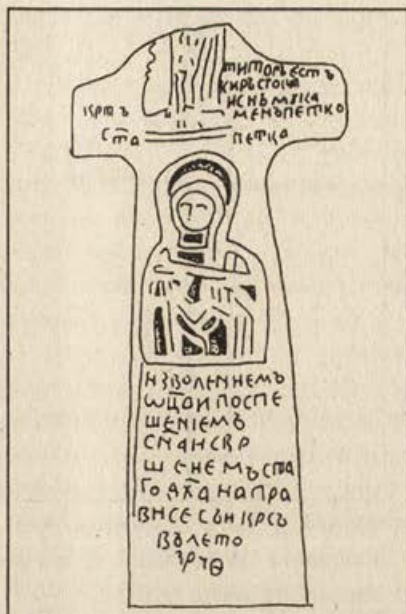 ТИТОРЪ ЕСТЪ
КИРЪ СТОИЦА
И СНЪ МУ КА
МЕНЪ ПЕТКО
КРТЪ
СТА ПЕТКА
ИЗВОЛЕНИЕМЪ
ѠЦ҃А И ПОСПЕ
ШЕНІЕМЪ
СН҃А И СВР
ШЕНЕМЪ СТА
ГО ДХ҃А НАПРА
ВИ СЕ СЪИ КРСЪ
ВЪ ЛЕТО
ЗРЧѲ